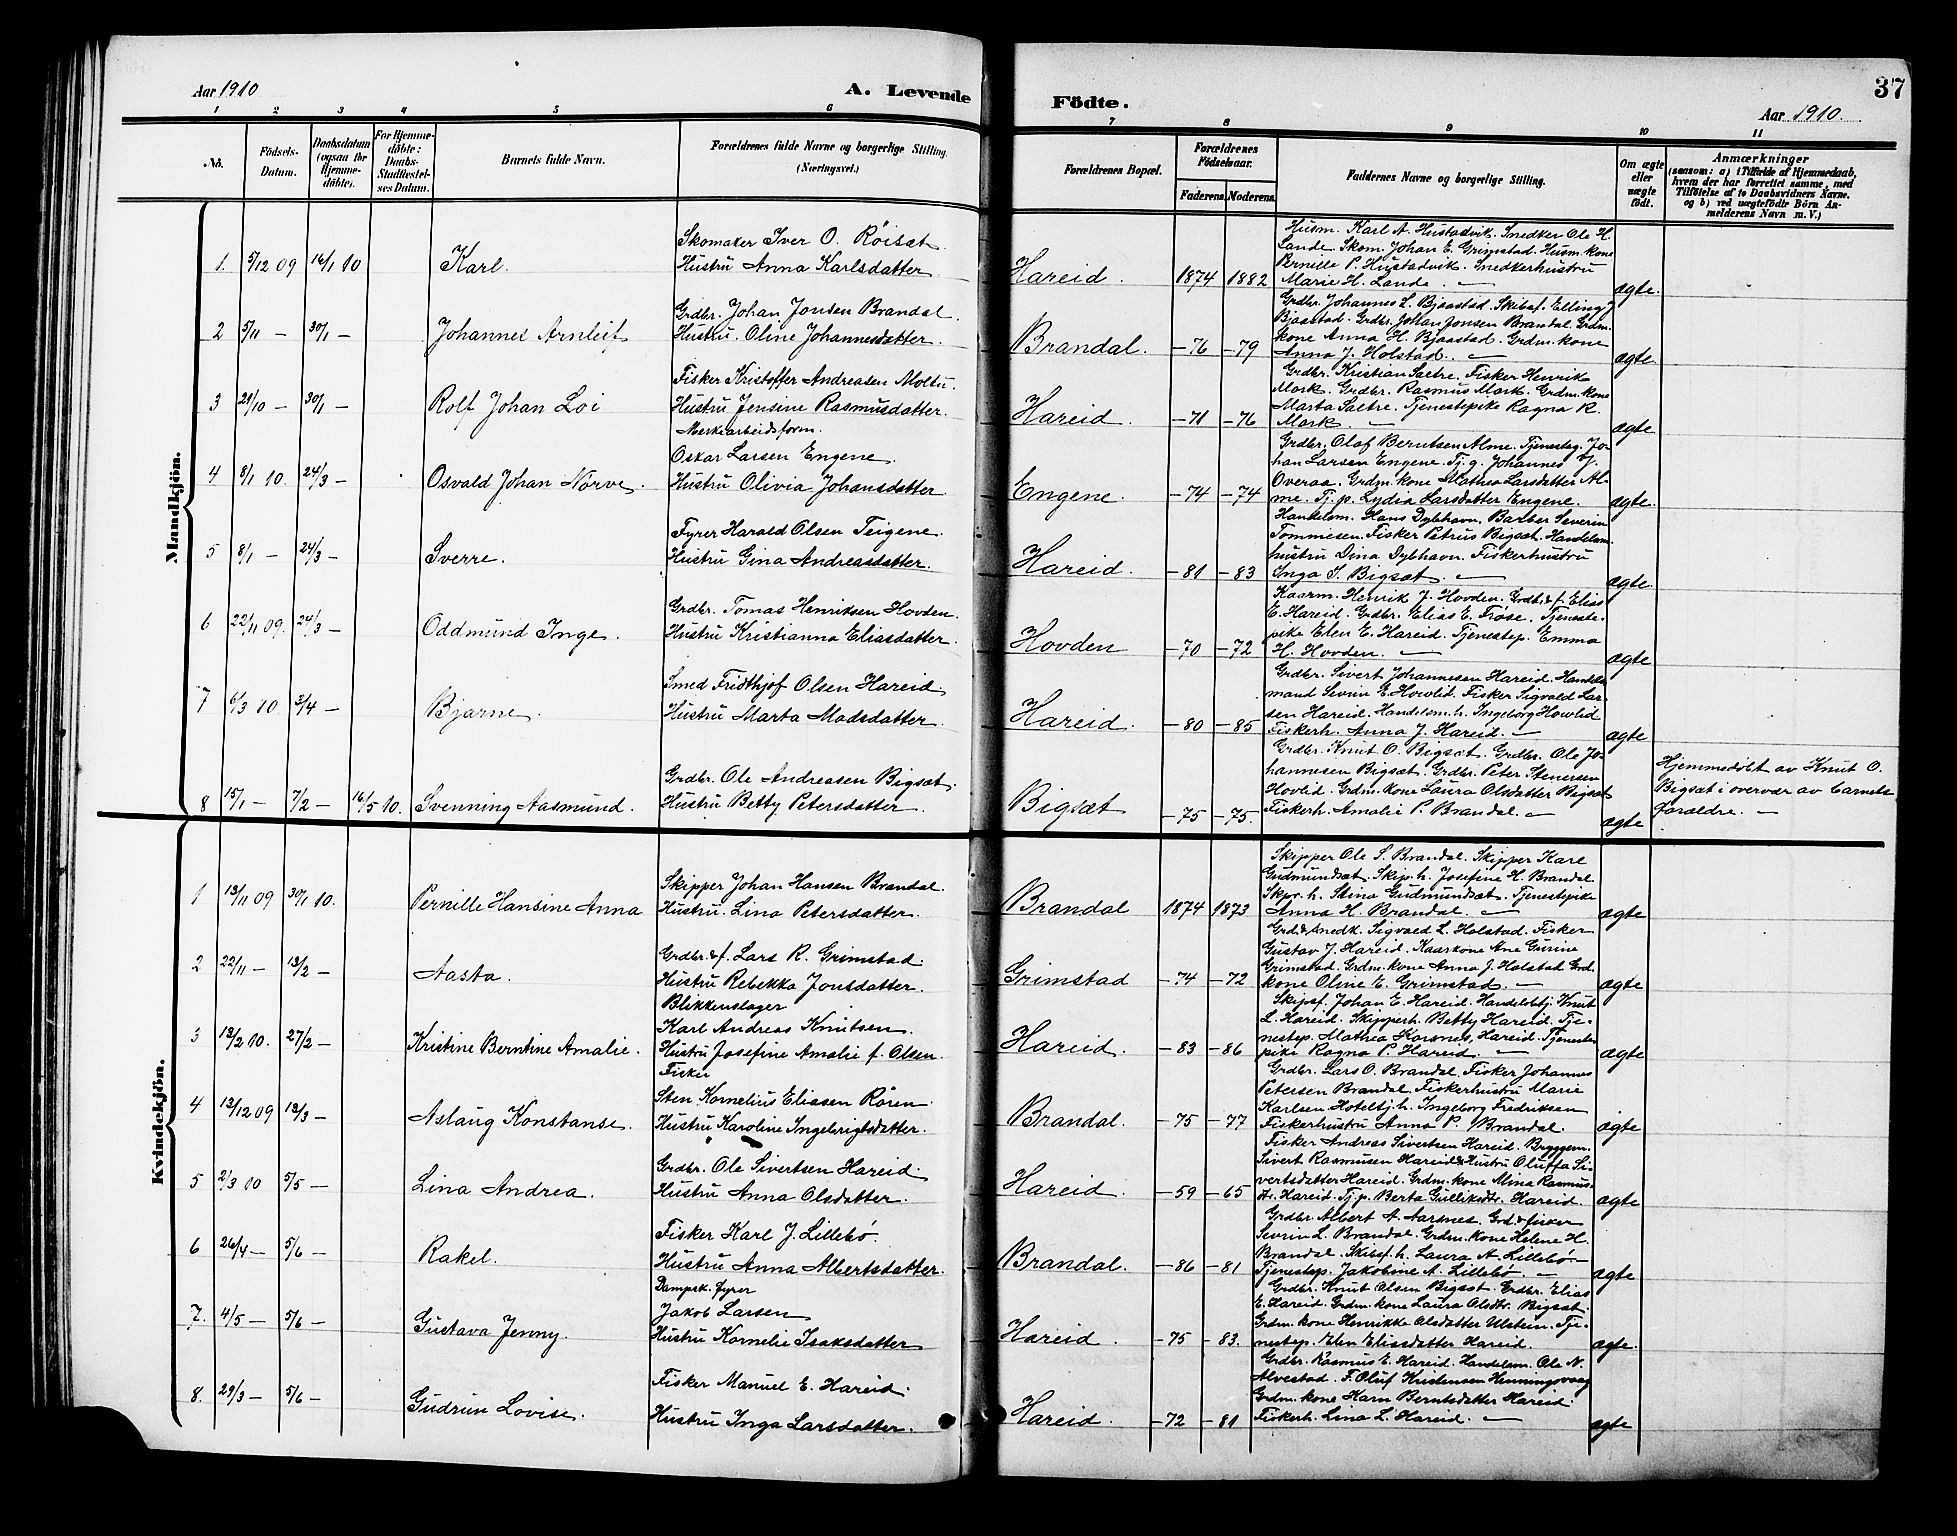 37
Aar 1910
A. Levende
Födte.
Aar 1910.
1 2 3 4 5 6
7 8 9 10 11
No.
Födsels-
Datum.
Daabsdatum
(ogsaa for
Hjemme-
döbte).
For Hjemme-
döbte:
Daabs-
Stadfæstel-
ses Datum.
Barnets fulde Navn.
Forældrenes fulde Navne og borgerlige Stilling.
(Næringsvei.)
Forældrenes Bopæl.
Forældrenes
Födselsaar.
Faderens. Moderens.
Faddernes Navne og borgerlige Stilling.
Om ægte
eller
uægte
födt.
Anmærkninger
(saasom: a) i Tilfælde af Hjemmedaab,
hvem der har forrettet samme, med
Tilföielse af to Daabsvidners Navne.
og b) ved uægtefödte Börn An-
melderens Navn m. V.)
Mandkjön.
1. 5/12 09 16/1 10 Karl.
Skomaker Iver O. Röiset.
Hustru Anna Karlsdatter.
Hareid. 1874 1882
Husm. Karl A. Hustadvik. Snedker Ole H.
Lande. Skom. Johan E. Grimstad. Husm. kone
Pernille P. Hustadvik. Snedkerhustru
Marie H. Lande. —
ægte.
2 5/11 — 30/1 — Johannes Arnleif
Grdbr. Johan Jonsen Brandal.
Hustru. Oline Johannesdatter.
Brandal. —76 —79
Grdbr. Johannes L. Bjaastad. Skibsf. Elling J
Bjaastad. Grdbr. Johan Jonsen Brandal. Grdm.
kone Anna H. Bjaastad. Grdm. kone
Anna J. Holstad. —
ægte.
3 21/10 — 30/1 — Rolf Johan Loi
Fisker Kristoffer Andreasen Moltu.
Hustru Jensine Rasmusdatter.
Hareid. —71 —76
Grdbr. Kristian Sætre. Fisker Henrik
Mork. Grdbr. Rasmus Mork. Grdm. kone
Marta Sætre. Tjenestepike Ragna R.
Mork. —
ægte
4 8/1 10. 24/3 — Osvald Johan Nörve.
Verksarbeidsform.
Oskar Larsen Engene.
Hustru Olivia Johansdatter
Engene. —74 —74
Grdbr. Olaf Berntsen Alme. Tjenesteg. Jo-
han Larsen Engene. Tj. g. Johannes J.
Overaa. Grdm. kone Mathea Larsdatter Al-
me. Tj. p. Lydia Larsdatter Engene.
ægte.
5 8/1 — 24/3 — Sverre.
Fyrer Harald Olsen Teigene.
Hustru Gina Andreasdatter.
Hareid. —81 —83
Handelsm. Hans Dybhavn. Barber Severin
Tommesen. Fisker Petrus Bigset. Handelsm.
hustru Dina Dybhavn. Fiskerhustru
Inga S. Bigset. —
ægte.
6 22/11 09. 24/3 — Oddmund Inge.
Grdbr. Tomas Henriksen Hovden.
Hustru Kristianna Eliasdatter.
Hovden —70 —72
Kaarm. Henrik J. Hovden. Grdb. & f. Elias
E. Hareid. Grdbr. Elias E. Fröse. Tjeneste-
pike Elen E. Hareid. Tjenestep. Emma
H. Hovden. —
ægte
7 6/3 10. 3/4 — Bjarne.
Smed Fridthjof Olsen Hareid.
Hustru Marta Madsdatter.
Hareid. —80 —85
Grdbr. Sivert Johannesen Hareid. Handels
mand Sevrin E. Hovlid. Fisker Sigvald Lar-
sen Hareid. Handelsm. h. Ingeborg Hovlid
Fiskerh. Anna J. Hareid. —
ægte
8 15/1 — 7/2 — 16/5 10. Svenning Aasmund.
Grdbr. Ole Andreasen Bigset.
Hustru Betty Petersdatter.
Bigset —75 —75.
Grdbr. Knut O. Bigset. Grdbr. Ole Jo-
hannesen Bigset. Grdbr. Peter Stenersen
Hovlid. Grdm. kone Laura Olsdatter Bigset
Fiskerh. Amalie P. Brandal. —
ægte
Hjemmedöbt av Knut O.
Bigset i overvær av barnets
forældre. —
Kvindekjön.
1 13/11 09 30/1 10. Pernille Hansine Anna
Skipper Johan Hansen Brandal.
Hustru. Lina Petersdatter.
Brandal 1874 1873
Skipper Ole S. Brandal. Skipper Karl
Gudmundset. Skip. h. Josefine H. Brandal.
Skpr. h. Stina Gudmundset. Tjenestepike
Anna H. Brandal. —
ægte
2 22/11 — 13/2 — Aasta.
Grdbr. & f. Lars R. Grimstad.
Hustru Rebekka Jonsdatter.
Grimstad —74 —72
Grd. & snedk. Sigvald L. Holstad. Fisker
Gustav J. Hareid. Kaarkone Ane Gurine
Grimstad. Grdm. kone Anna J. Holstad. Grd.
kone Oline E. Grimstad. —
ægte
3 13/2 10. 27/2 — Kristine Berntine Amalie.
Blikkenslager
Karl Andreas Knutsen.
Hustru Josefine Amalie f. Olsen.
Hareid. —83 —86
Skipsf. Johan E. Hareid. Handelsbtj. Knut
L. Hareid. Skipperh. Betty Hareid. Tje-
nestep. Mathea Korsnes, Hareid. Tjeneste
pike Ragna P. Hareid. —
ægte
4 13/12 09 13/3 — Aslaug Konstanse.
Fisker
Sten Kornelius Eliasen Rören.
Hustru Karoline Ingebrigtsdatter.
Brandal. —75 —77
Grdbr. Lars O. Brandal. Fisker Johannes
Petersen Brandal. Fiskerhustru Marie
Karlsen. Hotelbtj. h. Ingeborg Fredriksen
Fiskerhustru Anna P. Brandal.
ægte
5 2/3 10 5/5 — Lina Andrea.
Grdbr. Ole Sivertsen Hareid.
Hustru Anna Olsdatter.
Hareid. —59 —65
Fisker Andreas Sivertsen Hareid. Byggem.
Sivert Rasmusen Hareid & Hustru Oluffa Si-
vertsdatter Hareid. Grdm. kone Mina Rasmus-
dtr. Hareid. Tj. p. Berta Gulliksdtr. Hareid.
ægte
6 26/4 — 5/6 — Rakel.
Fisker Karl J. Lillebö.
Hustru Anna Albertsdatter.
Brandal. —86 —81
Grdbr. Albert A. Aarsnes. Grd. & fisker
Sevrin L. Brandal. Grdm. kone Helene H.
Brandal. Skibsf. h. Laura A. Lillebö. —
Tjenestep. Jakobine A. Lillebö. —
ægte
7. 4/5 — 5/6 — Gustava Jenny.
Dampsk. fyrer
Jakob Larsen
Hustru Kornelie Isaksdatter
Hareid —75 —83.
Grdbr. Knut Olsen Bigset. Grdbr. Elias
E. Hareid. Grdm. kone Laura Olsdtr. Bigset.
Grdm. kone Henrikke Olsdatter Ulstein. Tje-
nestep. Elen Eliasdatter Hareid.
ægte.
8. 29/3 — 5/6 — Gudrun Lovise.
Fisker Manuel E. Hareid.
Hustru Inga Larsdatter.
Hareid. —72 —81
Grdbr. Rasmus E. Hareid. Handelsm. Ole N.
Alvestad. F. Oluf Kristensen Henningsvaag
Grdm. kone Harn Berntsdatter Hareid.
Fiskerh. Lina L. Hareid. —
ægte